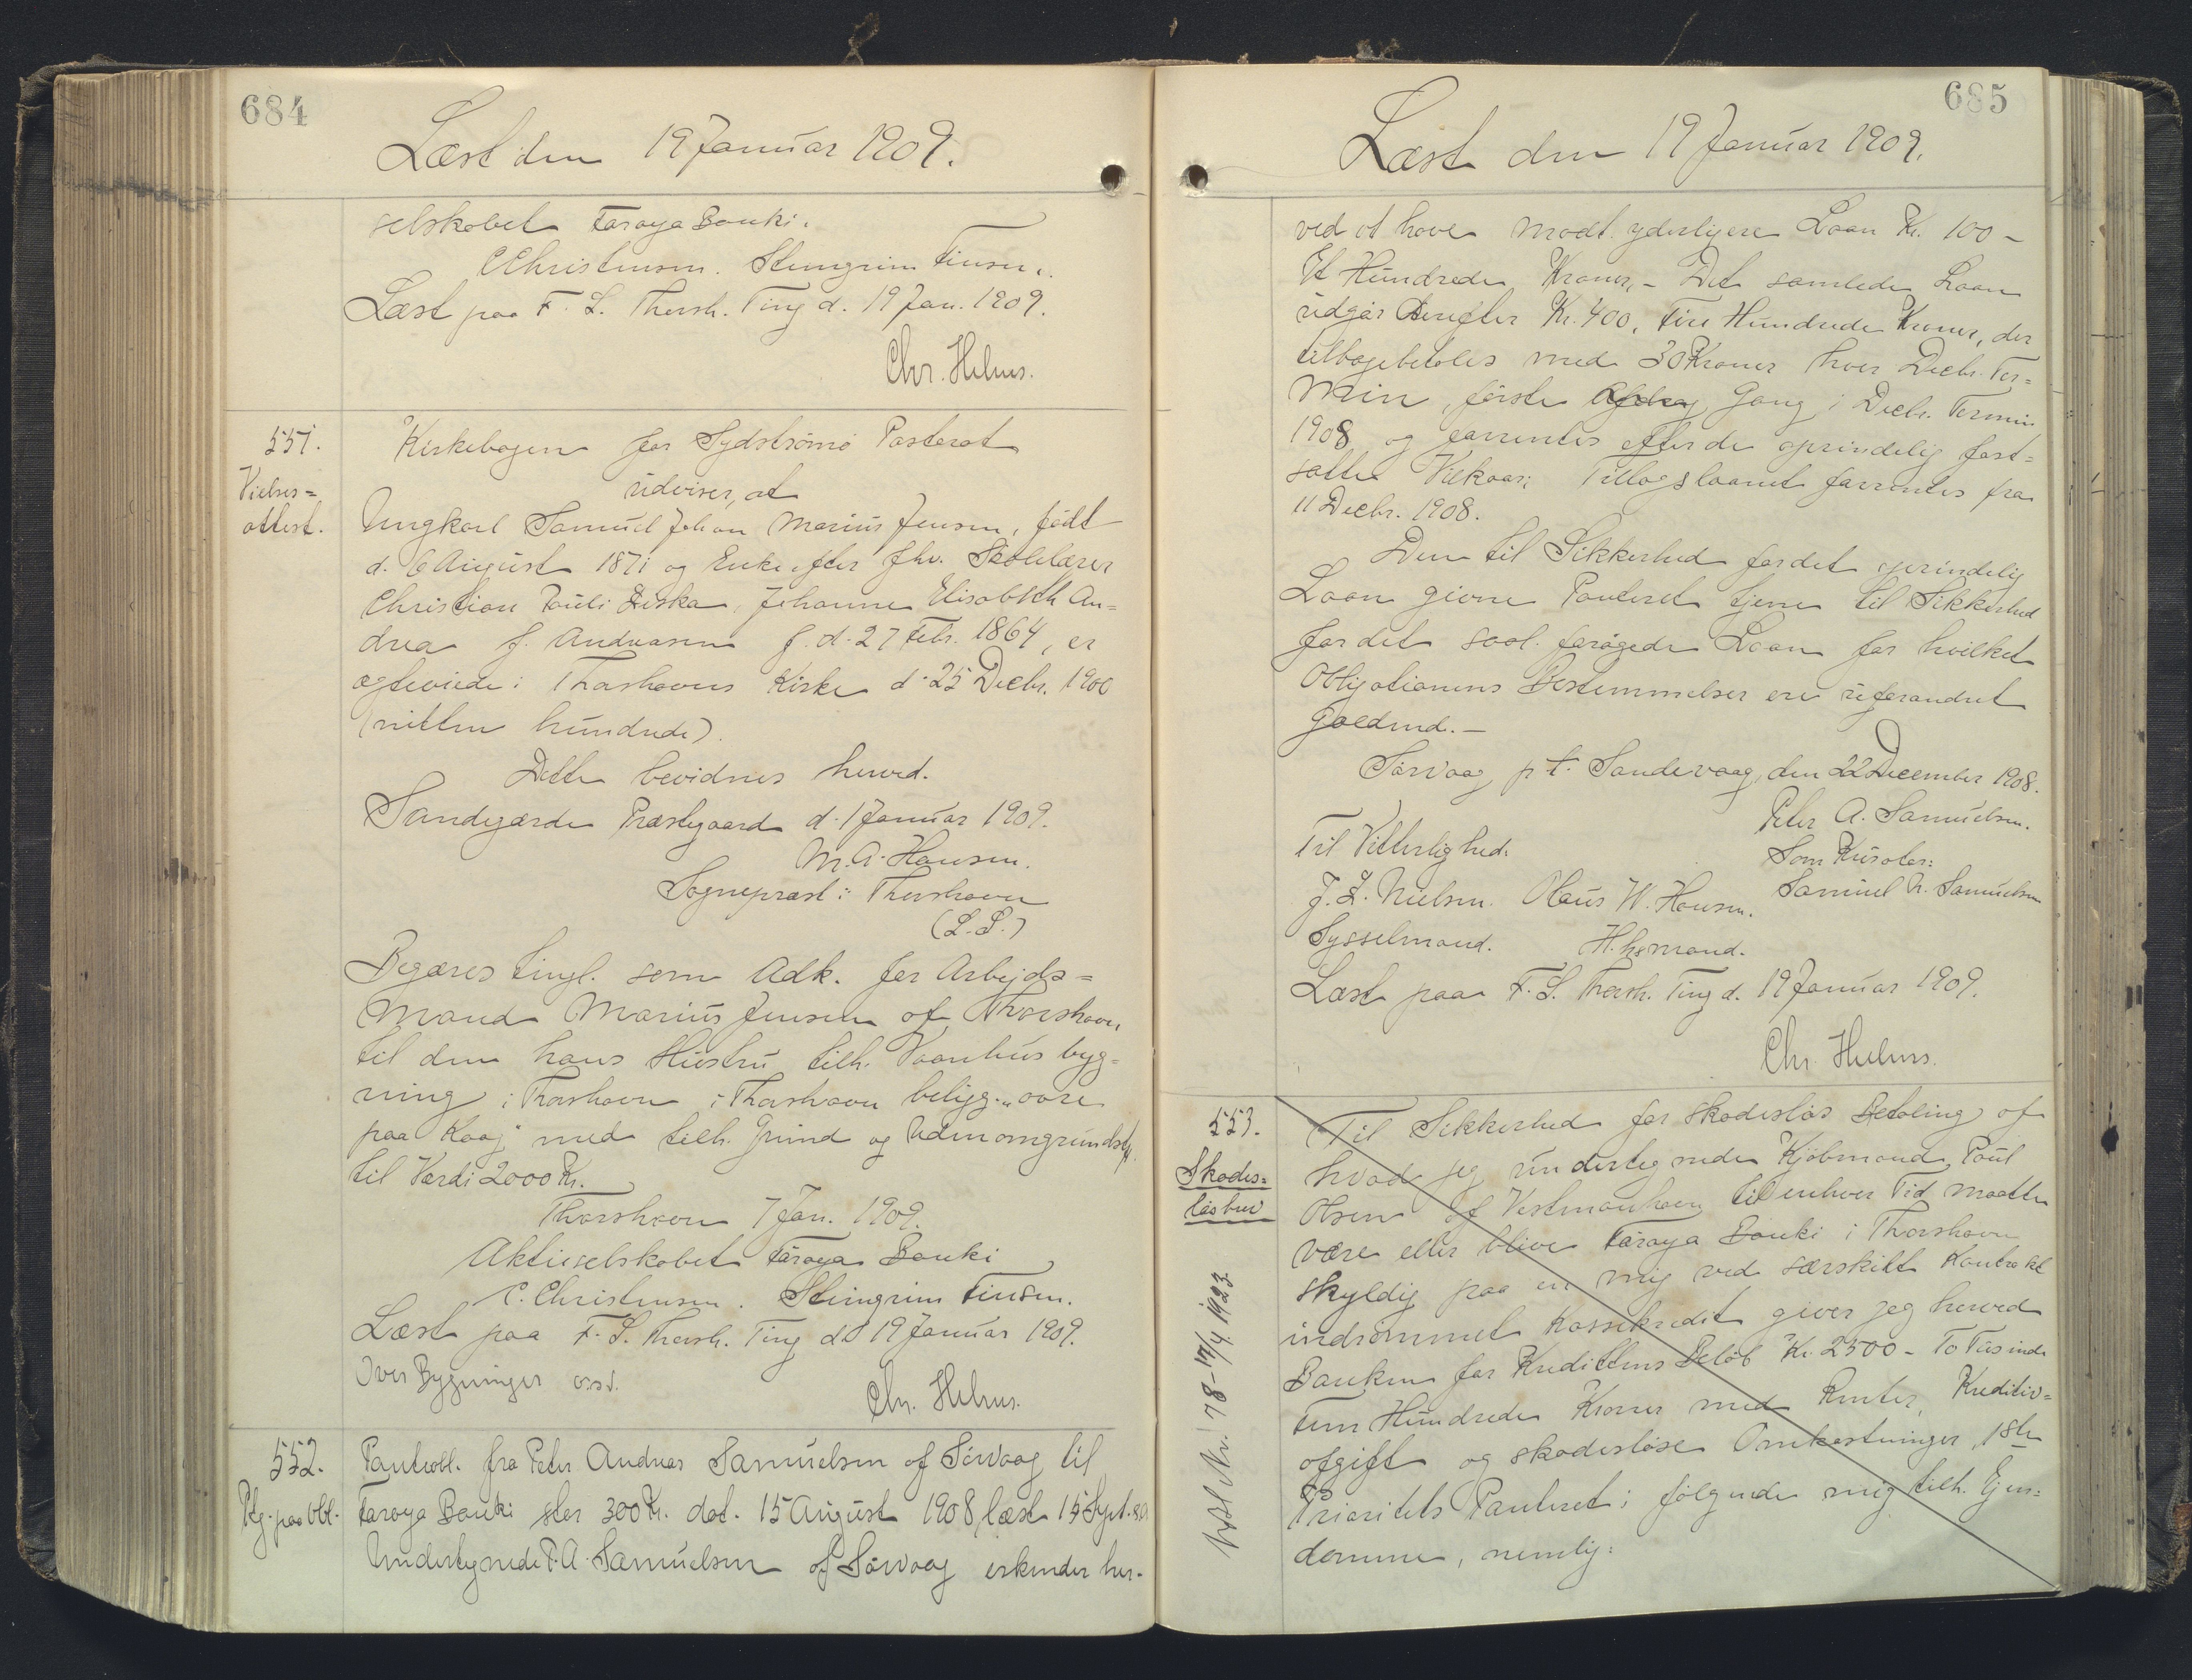 684
Læst den 19 Januar 1909.
selskabet Føroya Banki.
C Christensen. Steingrim Finsen.
Læst paa F. S. Thorsh. Ting d. 19 Jan. 1909.
Chr. Helms.
551.
Vielses=
attest.
Kirkebogen for Sydstrømø Pastorat
udviser, at
Ungkarl Samuel Johan Marius Jensen, født
d. 6 August 1871 og Enke efter fhv. Skolelærer
Christian Pauli Liska, Johanne Elisabeth An=
drea f. Andreasen f. d. 27 Febr. 1864, er
ægteviede i Thorshavns Kirke d. 25 Decbr. 1900
(nitten hundrede).
Dette bevidnes herved.
Sandegærde Præstegaard d. 1 Januar 1909.
M. A. Hansen.
Sognepræst i Thorshavn
(L. S.)
Begæres tingl. som Adk. for Arbejds=
mand Marius Jensen af Thorshavn
til den hans Hustru tilh. Vaanhusbyg=
ning i Thorshavn i Thorshavn beligg. "ovre
paa Kaaj" med tilh. Grund og Udenomgrundstk.
til Værdi 2000 Kr.
Thorshavn 7 Jan. 1909.
Aktieselskabet Føroya Banki
C. Christensen. Steingrim Finsen.
Læst paa F. S. Thorsh. Ting d. 19 Januar 1909.
Over Bygninger
Chr. Helms.
552.
Ptg. paa Obl.
Panteobl. fra Peter Andreas Samuelsen af Sørvaag til
Føroya Banki stor 300 Kr. dat. 15 August 1908, læst 15 Sept. s.A.
Undertegnede P. A. Samuelsen af Sørvaag erkender her-
685
Læst den 19 Januar 1909.
ved at have modt. yderligere Laan Kr. 100 -
Et Hundrede Kroner, - Det samlede Laan
udgør derefter Kr. 400, Fire Hundrede Kroner, der
tilbagebetales med 30 Kroner hver Decbr. Ter=
min, første Gang i Decbr. Termin
1908 og forrentes efter de oprindelig fast=
satte Vilkaar; Tillægslaanet forrentes fra
11 Decbr. 1908.
Den til Sikkerhed for det oprindelig
Laan givne Panteret tjene til Sikkerhed
for det saal. forøgede Laan for hvilket
Obligationens Bestemmelser ere uforandret
Gældend. -
Sørvaag p. t. Sandevaag, den 22 December 1908.
Peter A. Samuelsen.
Til Vitterlighed.
Som Kurator:
J. L. Nielsen. Olaus W. Hansen. Samuel N. Samuelsen
Sysselmand. H.hsmand.
Læst paa F. S. Thorsh. Ting d. 19 Januar 1909.
Chr. Helms.
553.
Skades=
løsbrev
Nyst Nr. 78 - 17/4 1923
Til Sikkerhed for skadesløs Betaling af
hvad jeg undertegnede Kjøbmand Poul
Olsen af Vestmanhavn til enhver Tid maatte
være eller blive Føroya Banki i Thorshavn
skyldig paa en mig ved særskilt Kontrakt
indrømmet Kassekredit giver jeg herved
Banken for Kredittens Beløb Kr. 2500 - To Tusinde
Fem Hundrede Kroner med Renter, Kreditiv=
afgift og skadesløse Omkostninger, 1ste
Prioritets Panteret i følgende mig tilh. Ejen=
domme, nemlig: